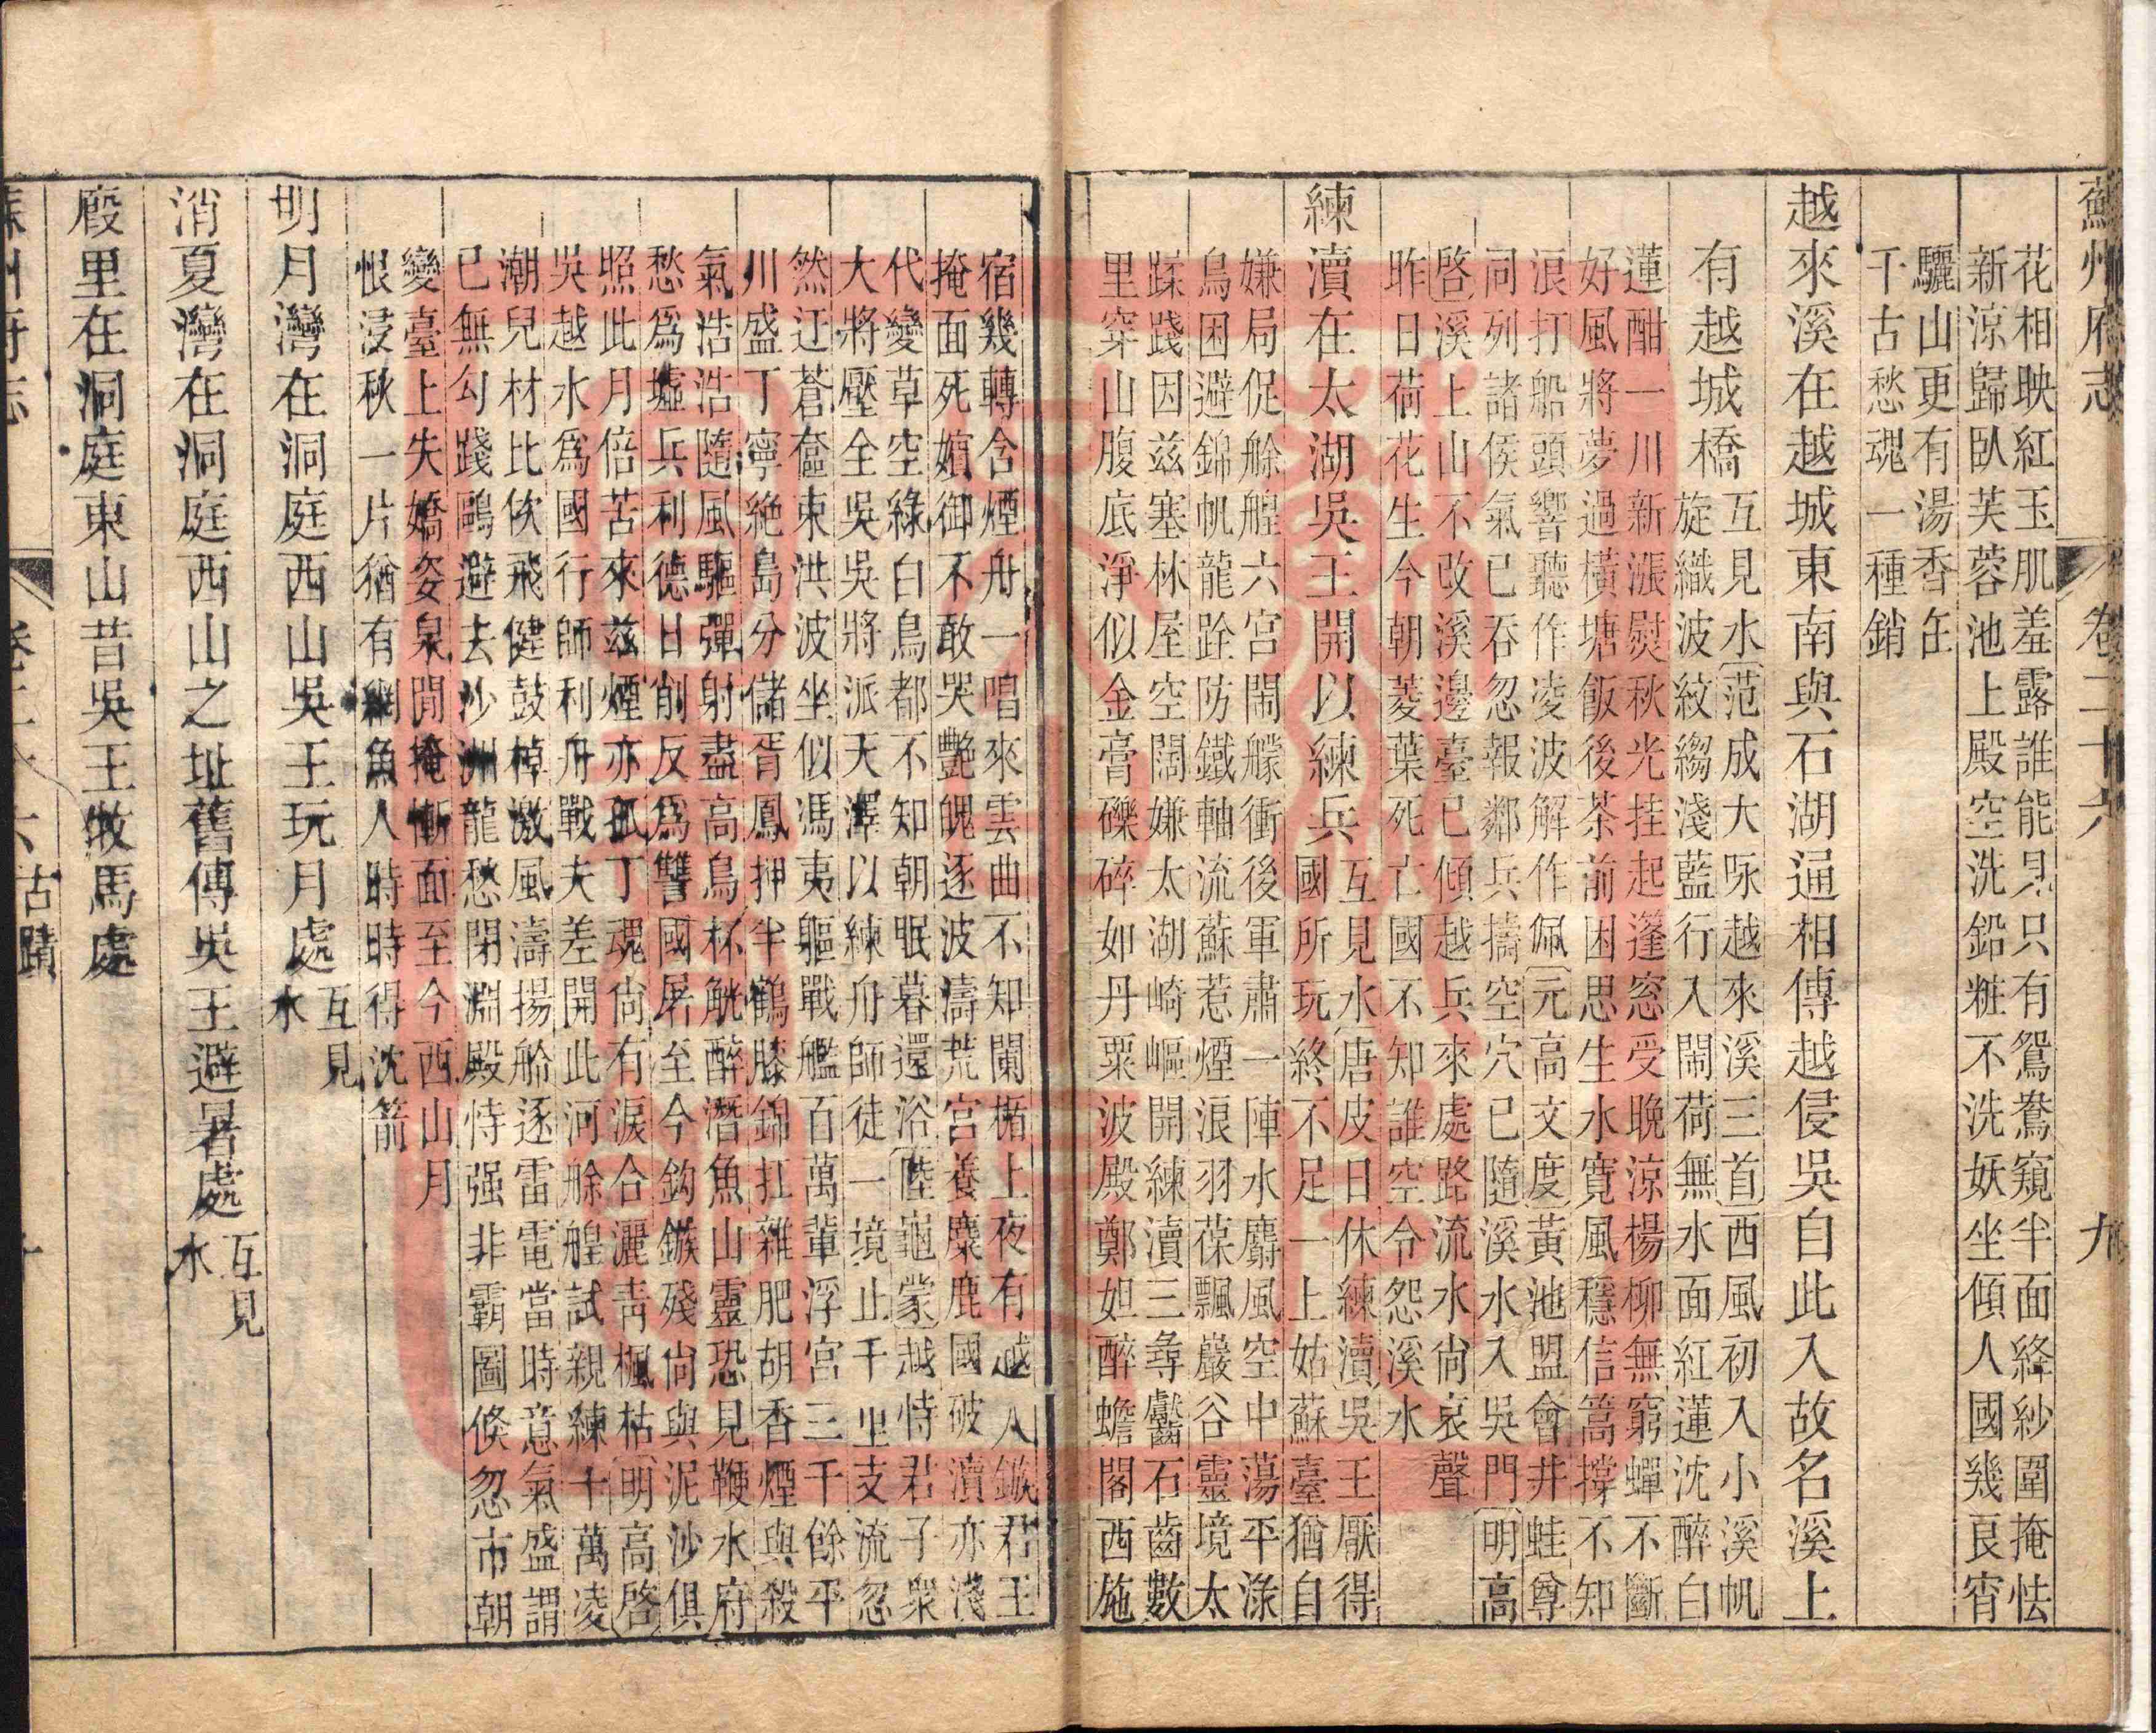 蘇州府志 卷二十六 九
花相映紅玉肌羞露誰能見只有鴛鴦窺半面絳紗圍掩怯
新涼歸臥芙蓉池上殿空洗鉛粧不洗妖坐傾人國幾良宵
驪山更有湯香在
千古愁魂一種銷
越來溪在越城東南與石湖通相傳越侵吳自此入故名溪上
有越城橋
互見水范成大咏越來溪三首西風初入小溪帆
旋織波紋縐淺藍行入閙荷無水面紅蓮沈醉白
蓮酣一川新漲熨秋光挂起篷窓受晚涼楊柳無窮蟬不斷
好風將夢過橫塘飯後茶前困思生水寛風穩信篙撑不知
浪打船頭響聽作凌波解作佩元高文度黃池盟會井蛙尊
同列諸侯氣已吞忽報鄰兵擣空穴已隨溪水入吳門明高
啓溪上山不改溪邊臺已傾越兵來處路流水尙哀聲
昨日荷花生今朝菱葉死亡國不知誰空令怨溪水
練瀆在太湖吳王開以練兵
互見水唐皮日休練瀆吳王厭得
國所玩終不足一上姑蘇臺猶自
嫌局促艅艎六宮閙艨衝後軍肅一陣水麝風空中蕩平淥
鳥困避錦帆龍跧防鐵軸流蘇惹煙浪羽葆飄巖谷靈境太
蹂踐因兹塞林屋空闊嫌太湖崎嶇開練瀆三尋齾石齒數
里穿山腹底淨似金膏礫碎如丹粟波殿鄭妲醉蟾閣西施
宿幾轉含煙舟一唱來雲曲不知闌楯上夜有越人鏃君王
掩面死嬪御不敢哭艷魄逐波濤荒宮養麋鹿國破瀆亦淺
代變草空綠白鳥都不知朝眠暮還浴陸龜蒙越恃君子衆
大將壓全吳吳將派天澤以練舟師徒一境止千里支流忽
然迂蒼奩東洪波坐似馮夷軀戰艦百萬輩浮宮三千餘平
川盛丁寧絶島分儲胥鳳押半鶴膝錦扛雜肥胡香煙與殺
氣浩浩隨風驅彈射盡高鳥杯觥醉潛魚山靈恐見鞭水府
愁爲墟兵利德日削反爲讐國屠至今鈎鏃殘尙與泥沙俱
照此月倍苦來兹煙亦孤丁魂尙有淚合灑青楓枯明高啓
吳越水爲國行師利舟戰夫差開此河艅艎試親練十萬凌
潮兒材比佽飛健鼓棹激風濤揚舲逐雷電當時意氣盛謂
已無勾踐鷗避去沙洲龍愁閉淵殿恃强非霸圖倏忽市朝
變臺上失嬌姿泉閒掩慚面至今西山月
恨浸秋一片猶有網魚人時時得沈箭
明月灣在洞庭西山吳王玩月處
互見
水
消夏灣在洞庭西山之址舊傳吳王避暑處
互見
水
廄里在洞庭東山昔吳王牧馬處
蘇州府志 卷二十六 古蹟 十